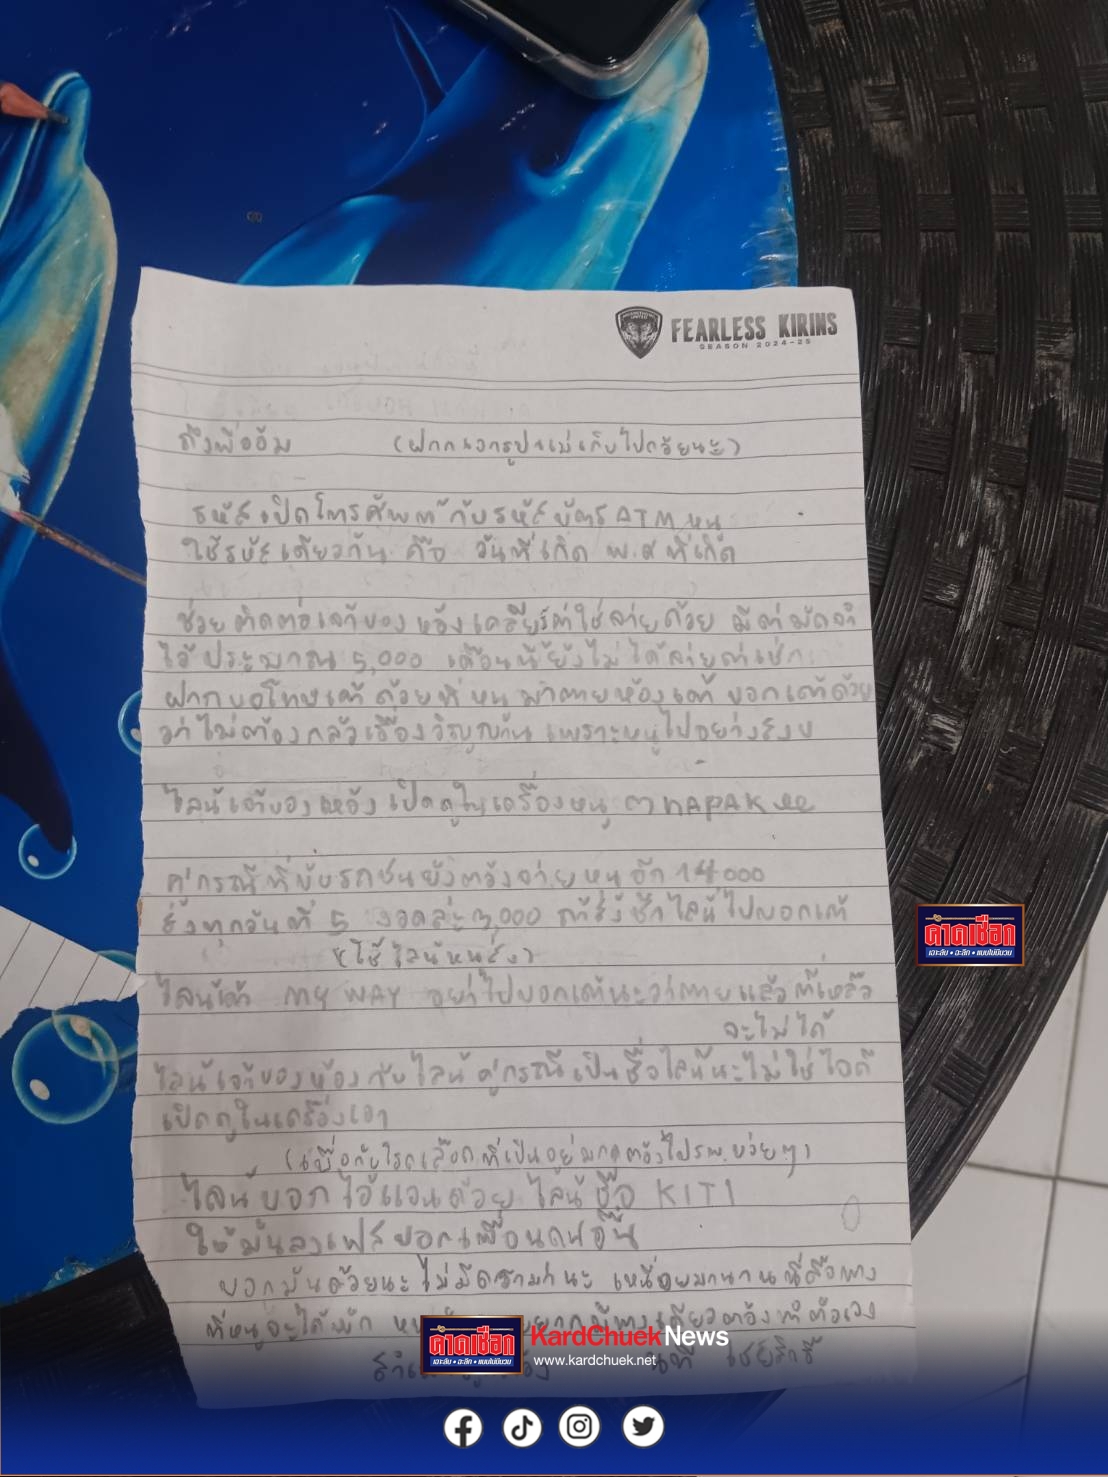 FEARLESS KIRINS
SEASON 2024-25
ถึงพี่ออัม (ฝากบอกรูปแม่เก็บไปด้วยนะ)
รหัสเปิดโทรศัพท์กับรหัสบัตร ATM หนู
ใช้รหัสเดียวกัน คือ วันที่เกิด พ.ศ ที่เกิด
ช่วยติดต่อเจ้าของห้องเคลียร์ค่าใช้จ่ายด้วย มีค่ามัดจำ
ไว้ประมาณ 5,000 เดือนนี้ยังไม่ได้จ่ายค่าเช่า
ฝากขอโทษเค้าด้วยที่หนูมาตายห้องเค้า บอกเค้าด้วย
ว่าไม่ต้องกลัวเรื่องวิญญาณ เพราะหนูไปอย่างสงบ
ไลน์เจ้าของห้องเปิดดูในเครื่องหนู
คู่กรณีที่ขับรถชนยังต้องจ่ายหนูอีก 14000
ทุกวันที่ 5 งวดละ 3,000 ไลน์ไปบอกเค้า
(ใช้ไลน์หนูส่ง)
ไลน์เค้า MY WAY อย่าไปบอกเค้านะว่าตายแล้วที่เหลือ
จะไม่ได้
ไลน์เจ้าของห้องกับไลน์คู่กรณีเป็นชื่อไลน์นะไม่ใช่ไอดี
เปิดดูในเครื่องเอา
(เบื่อกับโรคเลือดที่เป็นอยู่มากต้องไปรพ.บ่อยๆ)
ไลน์บอกไอ้แอนด้วย ไลน์ชื่อ KITI
ให้มันลงเฟสบอกเพื่อนคนอื่น
บอกมันด้วยนะไม่มีดราม่านะ เหนื่อยมานานนี่คือทาง
ที่หนูจะได้พัก
ตัวเอง
คาดเชือก
เจาะลึก • ฉะลึก • แบบไม่มีนวม
คาดเชือก
เจาะลึก • ฉะลึก • แบบไม่มีนวม
KardChuekNews
www.kardchuek.net